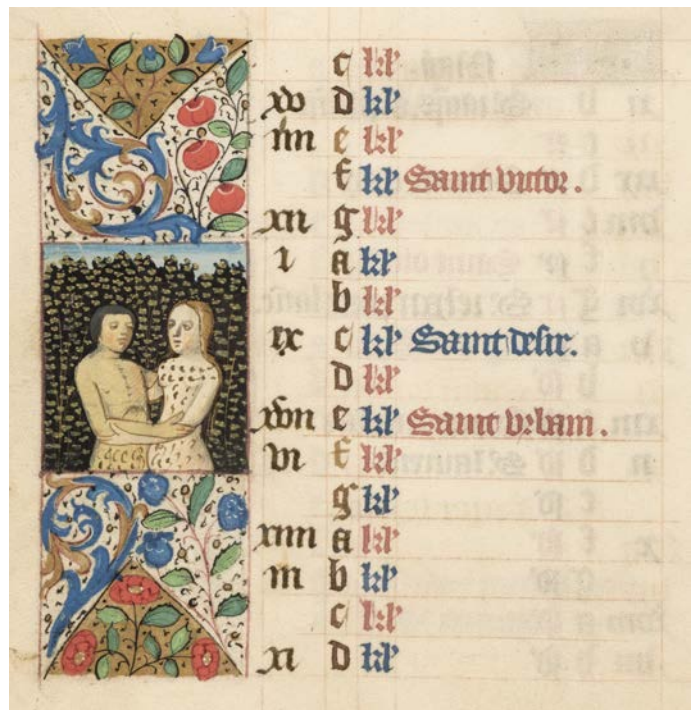 c kl'
xv D kl'
iiii e kl'
f kl' Saint victor.
xii g kl'
i a kl'
b kl'
ix c kl' Saint desir.
D kl'
xvii e kl' Saint vrbain.
vi f kl'
g kl'
xiiii a kl'
iii b kl'
c kl'
xi D kl'